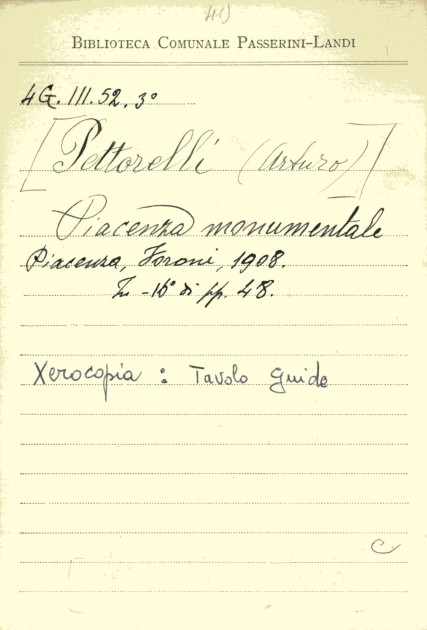 41)
BIBLIOTECA COMUNALE PASSERINI-LANDI
4G. III. 52. 3°
[Pettorelli (Arturo)]
Piacenza monumentale
Piacenza, Foroni, 1908.
In-16° di pp. 48.
Xerocopia : Tavolo Guide
C